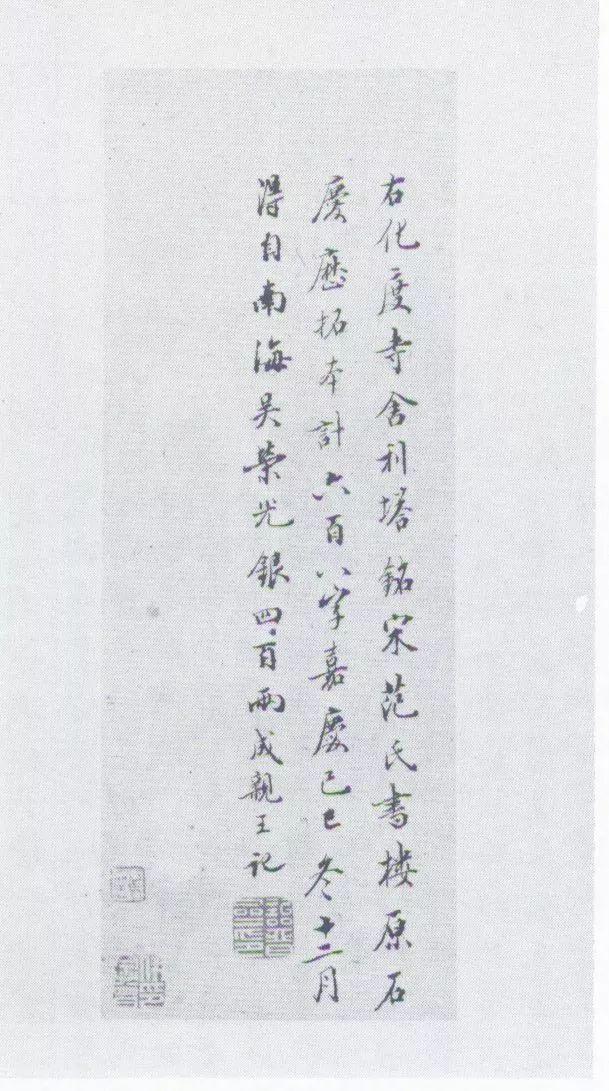 右化度寺舍利塔銘宋范氏書樓原石
慶歷拓本計六百八字嘉慶己巳冬十二月
得自南海吳榮光銀四百兩成親王記